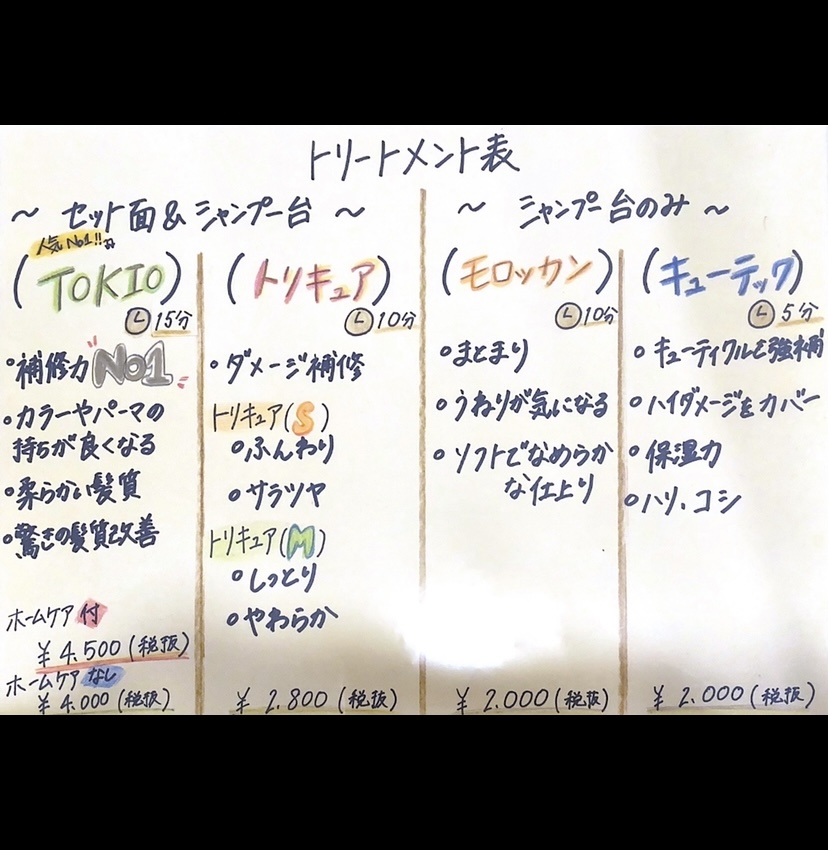 トリートメント表
〜 セット面 & シャンプー台 〜
人気No1!!
(TOKIO)
15分
•補修力No1
•カラーやパーマの
持ちが良くなる
•柔らかい髪質
•驚きの髪質改善
ホームケア付
¥4,500(税抜)
ホームケアなし
¥4,000(税抜)
(トリキュア)
10分
•ダメージ補修
トリキュア(S)
•ふんわり
•サラツヤ
トリキュア(M)
•しっとり
•やわらか
¥2,800(税抜)
〜 シャンプー台のみ 〜
(モロッカン)
10分
•まとまり
•うねりが気になる
•ソフトでなめらか
な仕上り
¥2,000(税抜)
(キューテック)
5分
•キューティクルを強補
•ハイダメージをカバー
•保湿力
•ハリ、コシ
¥2,000(税抜)